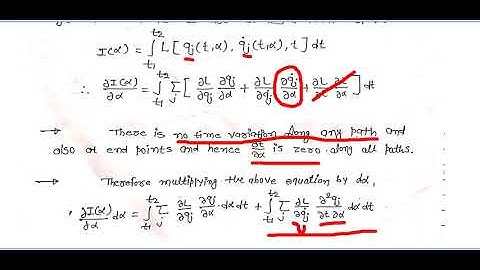 I(α) = ∫_{t1}^{t2} L [ q_j (t,α), q̇_j (t,α), t ] dt
∴ ∂I(α)/∂α = ∫_{t1}^{t2} Σ_j [ ∂L/∂q_j ∂q_j/∂α + ∂L/∂q̇_j ∂q̇_j/∂α + ∂L/∂t ∂t/∂α ] dt
→ There is no time variation along any path and
also at end points and hence ∂t/∂α is zero along all paths.
→ Therefore multiplying the above equation by dα,
∂I(α)/∂α dα = ∫_{t1}^{t2} Σ_j ∂L/∂q_j ∂q_j/∂α dα dt + ∫_{t1}^{t2} Σ_j ∂L/∂q̇_j ∂²q_j/∂t ∂α dα dt